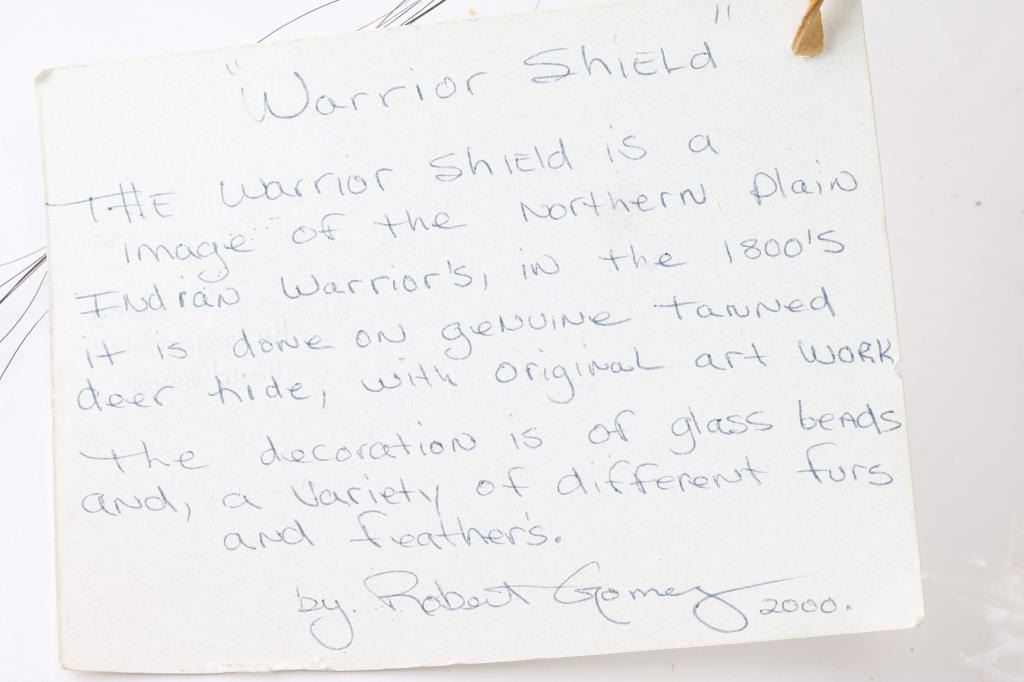 "Warrior Shield"
THE Warrior Shield is a
image of the Northern Plain
Indian Warrior's, in the 1800's
it is done on genuine tanned
deer hide, with original art work
the decoration is of glass beads
and, a variety of different furs
and feather's.
by. Robert Gomez 2000.